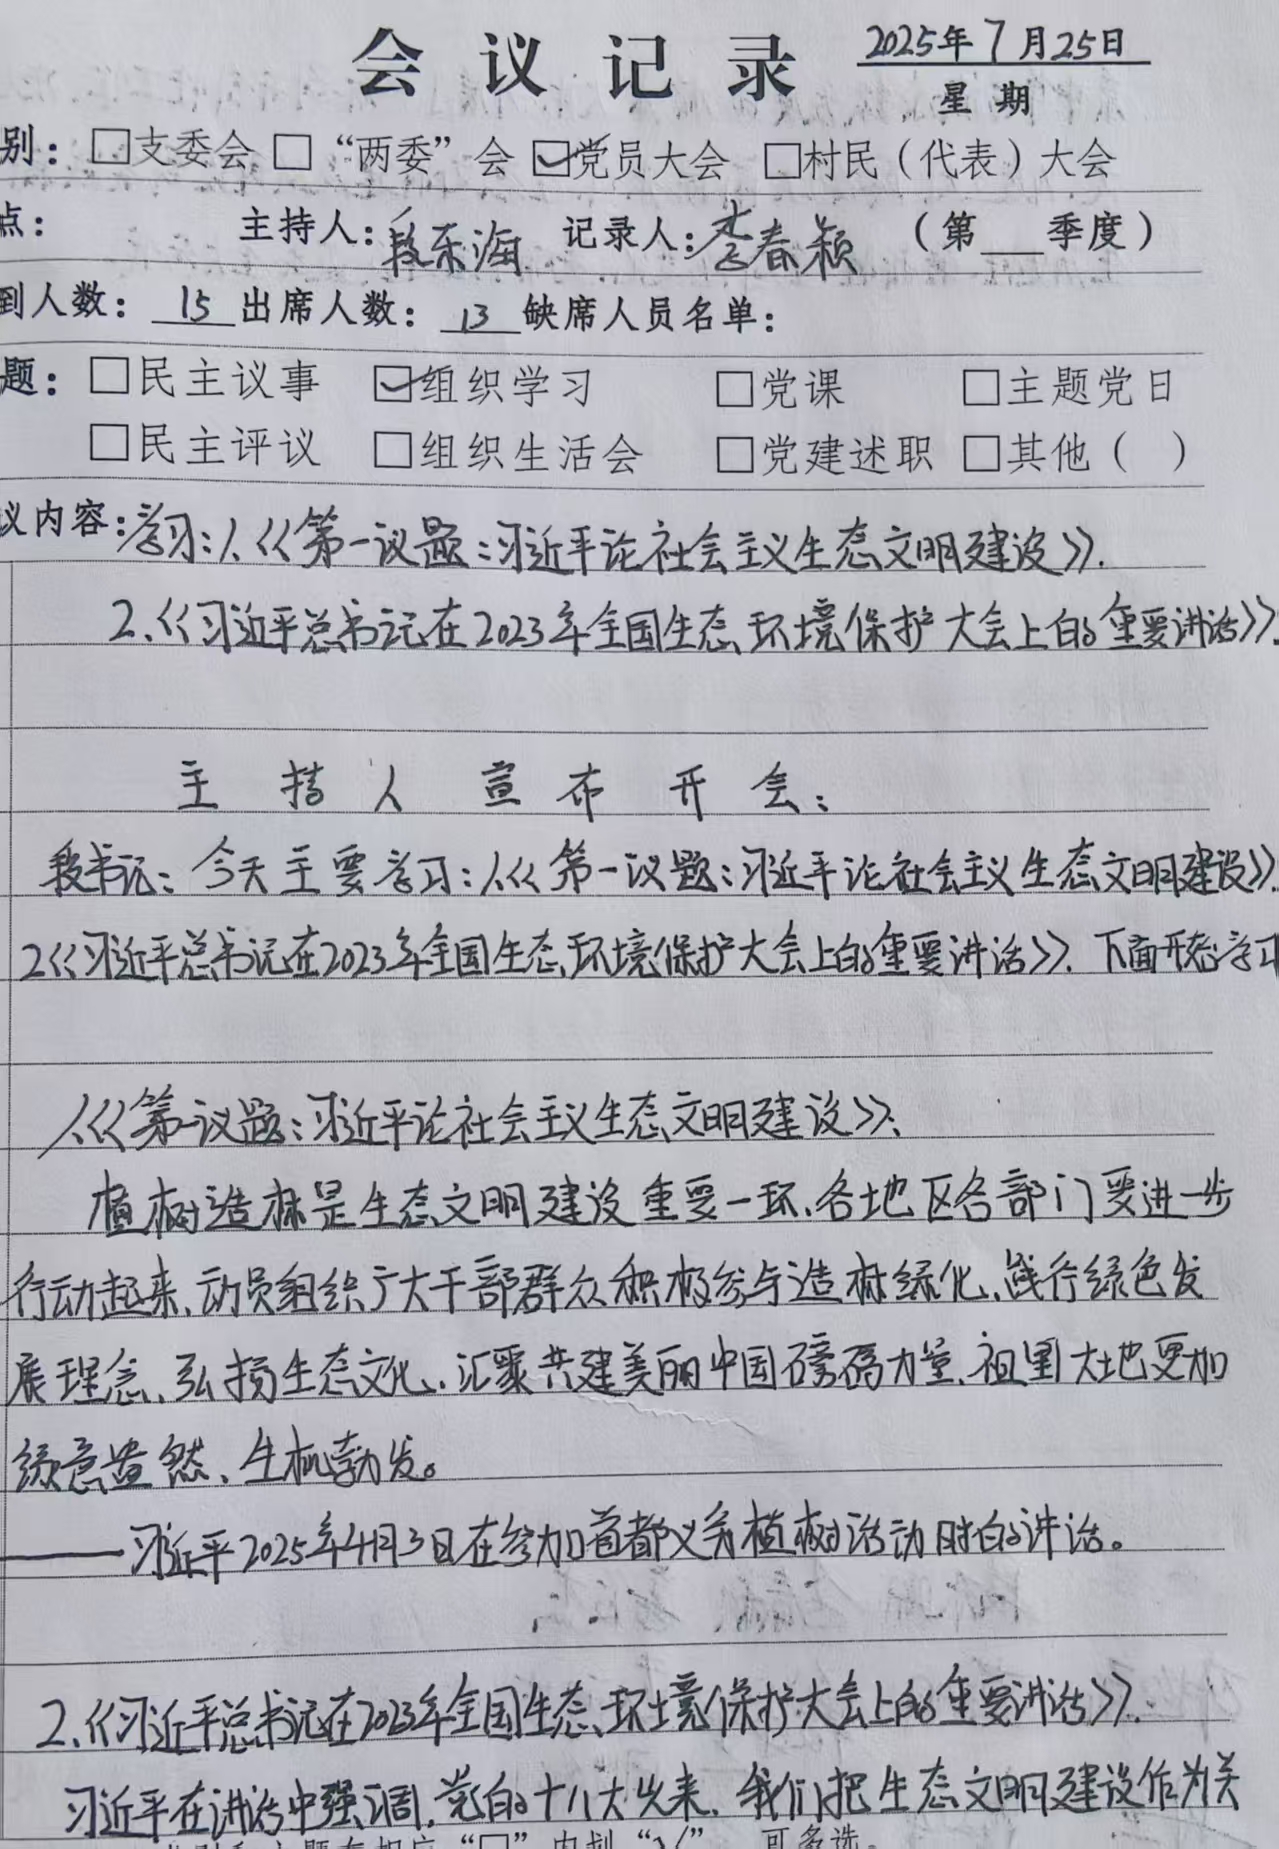 会议记录 2025年7月25日
星期
别：□支委会 □“两委”会 ☑党员大会 □村民（代表）大会
点： 主持人：段东海 记录人：李春颖 （第 季度）
到人数：15 出席人数：13 缺席人员名单：
题：□民主议事 ☑组织学习 □党课 □主题党日
□民主评议 □组织生活会 □党建述职 □其他（ ）
议内容：学习：1.《第一议题：习近平论社会主义生态文明建设》.
2.《习近平总书记在2023年全国生态环境保护大会上的重要讲话》.
主持人宣布开会：
段书记：今天主要学习：1.《第一议题：习近平论社会主义生态文明建设》.
2《习近平总书记在2023年全国生态环境保护大会上的重要讲话》. 下面开始学习
1.《第一议题：习近平论社会主义生态文明建设》.
植树造林是生态文明建设重要一环、各地区各部门要进一步
行动起来、动员组织广大干部群众积极参与造林绿化、践行绿色发
展理念、弘扬生态文化、汇聚共建美丽中国磅礴力量、祖国大地更加
绿意盎然、生机勃发。
——习近平2025年4月3日在参加首都义务植树活动时的讲话。
2.《习近平总书记在2023年全国生态环境保护大会上的重要讲话》.
习近平在讲话中强调，党的十八大以来，我们把生态文明建设作为关
“□”内划“√”，可多选。